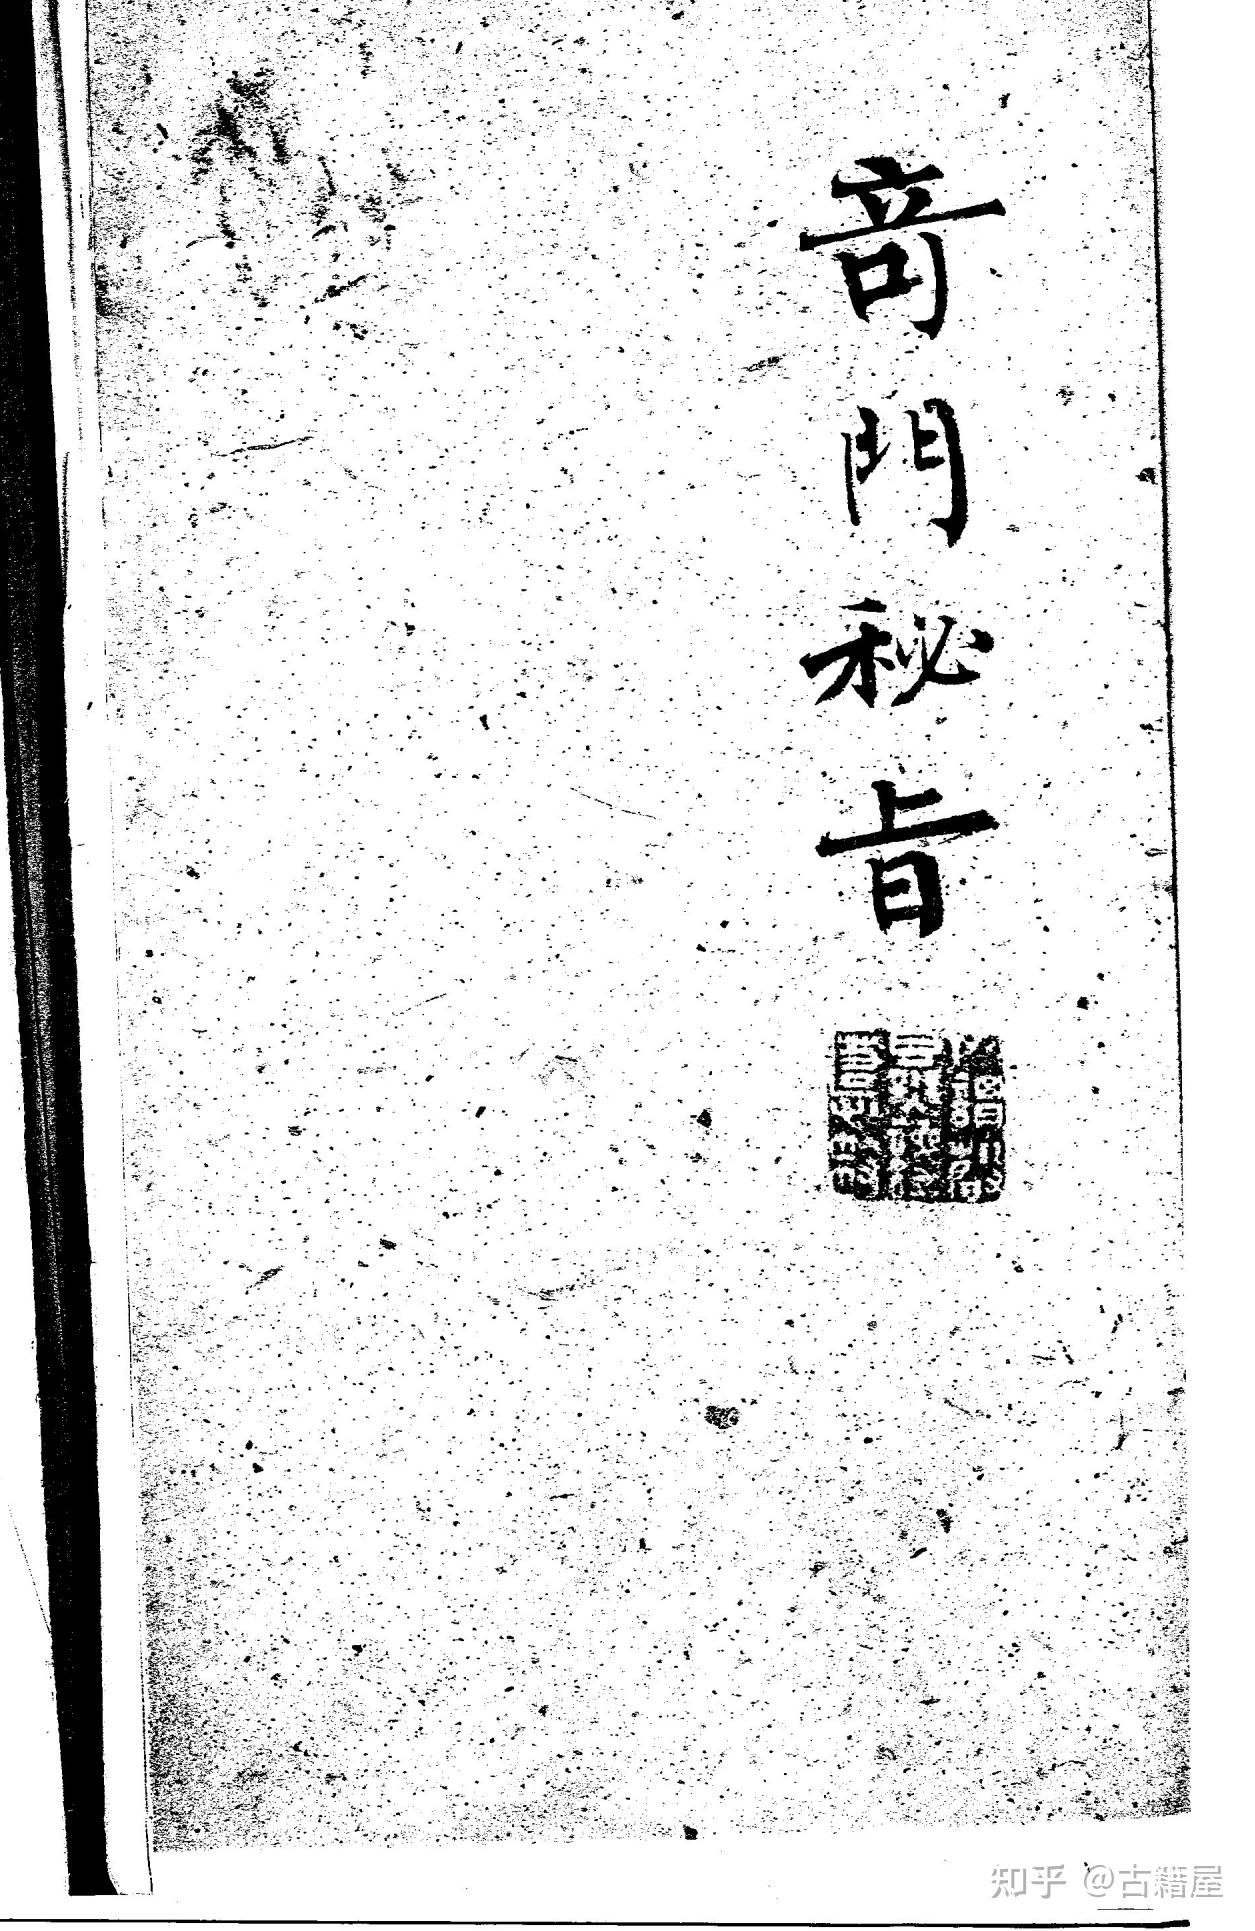 竒門秘旨
知乎 @古籍屋